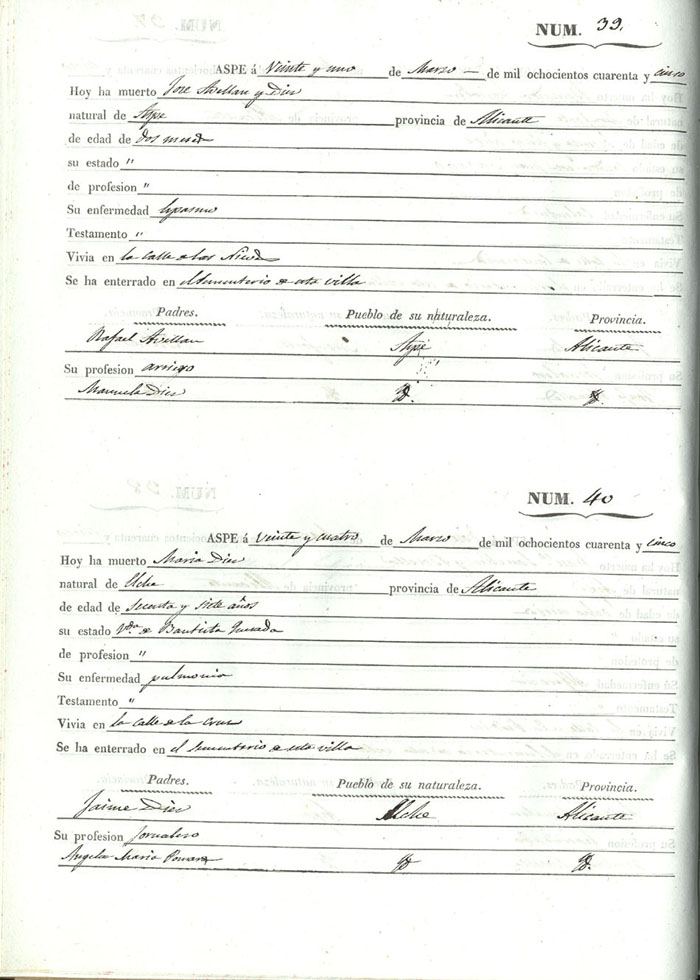 NUM. 39.
ASPE á Veinte y uno de Marzo - de mil ochocientos cuarenta y cinco
Hoy ha muerto José Avellan y Dies
natural de Aspe provincia de Alicante
de edad de dos meses
su estado "
de profesion "
Su enfermedad espasmo
Testamento "
Vivia en la calle de las Nieves
Se ha enterrado en el Sementerio de esta villa
Padres. Pueblo de su naturaleza. Provincia.
Rafael Avellan Aspe Alicante
Su profesion arriero
Manuela Dies
NUM. 40
ASPE á Veinte y cuatro de Marzo de mil ochocientos cuarenta y cinco
Hoy ha muerto Maria Dies
natural de Elche provincia de Alicante
de edad de Secenta y Siete años
su estado Vda. de Bautista Quesada
de profesion "
Su enfermedad pulmonia
Testamento "
Vivia en la calle de la Cruz
Se ha enterrado en el Sementerio de esta villa
Padres. Pueblo de su naturaleza. Provincia.
Jaime Dies Elche Alicante
Su profesion Jornalero
Angela Maria Pomares